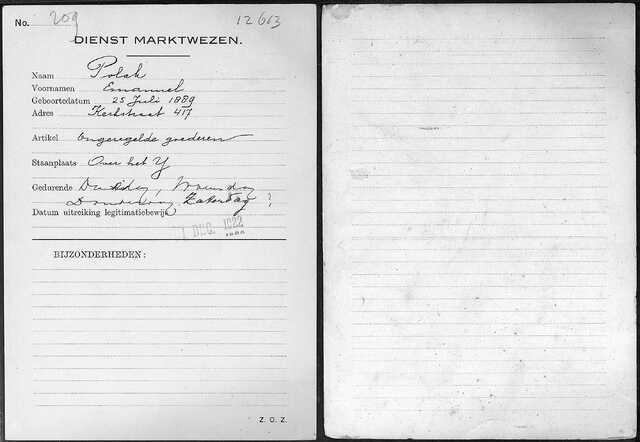 No. 209 12663
DIENST MARKTWEZEN.
Naam Polak
Voornamen Emanuel
Geboortedatum 25 Juli 1889
Adres Kerkstraat 417
Artikel Ongeregelde goederen
Staanplaats Over het Y
Gedurende Dinsdag, Woensdag
Donderdag Zaterdag ?
Datum uitreiking legitimatiebewijs
1 DEC. 1922
BIJZONDERHEDEN:
Z. O. Z.